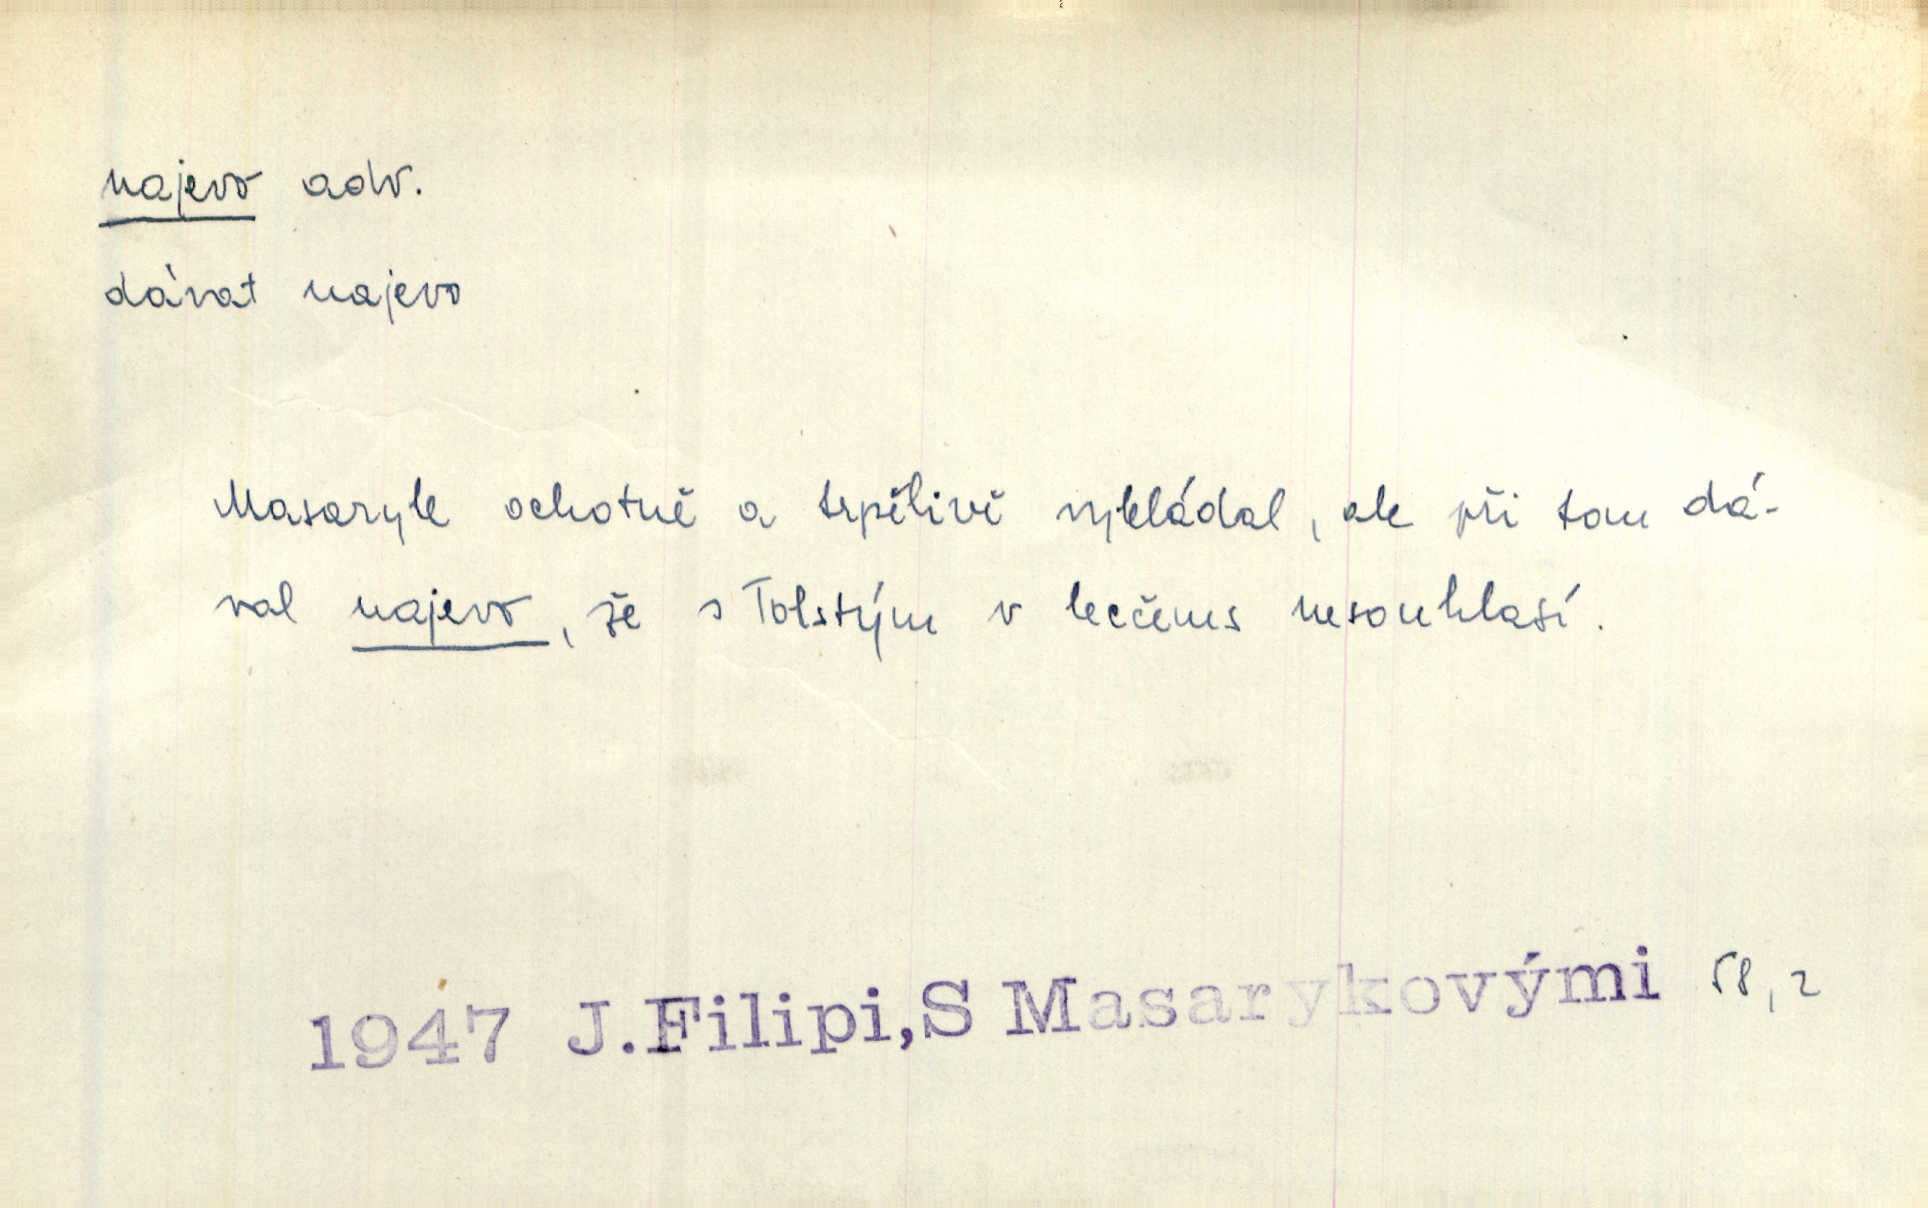 najevo adv.
dávat najevo
Masaryk ochotně a trpělivě vykládal, ale při tom dá-
val najevo, že s Tolstým v lecčems nesouhlasí.
1947 J.Filipi,S Masarykovými 58,2